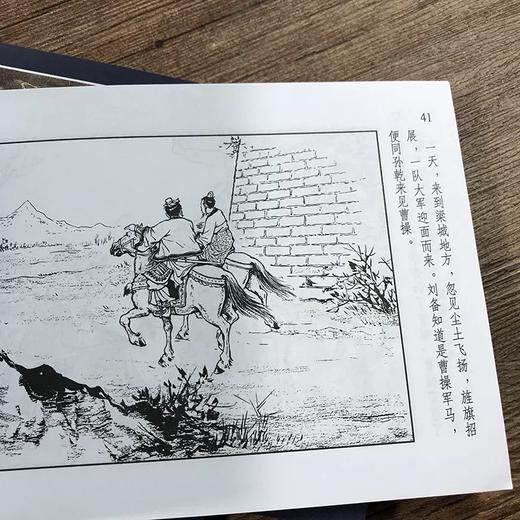 41
一天，来到梁城地方，忽见尘土飞扬，旌旗招
展，一队大军迎面而来。刘备知道是曹操军马，
便同孙乾来见曹操。